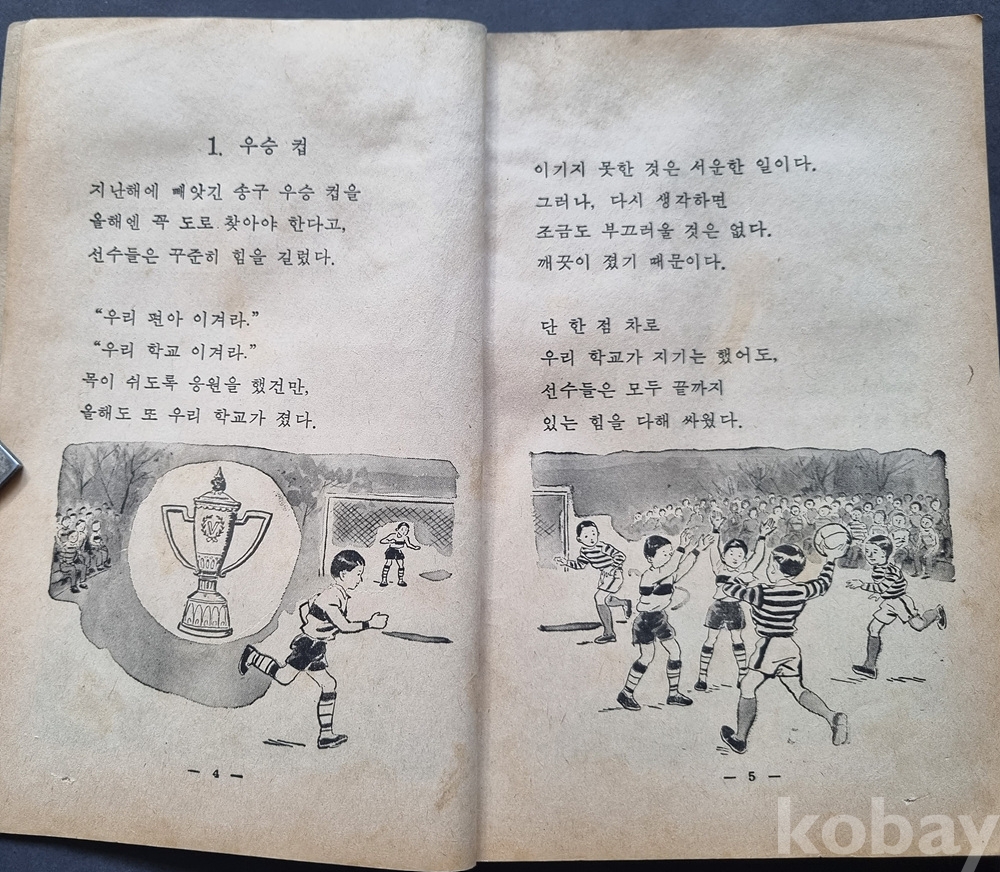 1. 우승 컵
지난해에 빼앗긴 송구 우승 컵을
올해엔 꼭 도로 찾아야 한다고,
선수들은 꾸준히 힘을 길렀다.
“우리 편아 이겨라.”
“우리 학교 이겨라.”
목이 쉬도록 응원을 했건만,
올해도 또 우리 학교가 졌다.
V
— 4 —
이기지 못한 것은 서운한 일이다.
그러나, 다시 생각하면
조금도 부끄러울 것은 없다.
깨끗이 졌기 때문이다.
단 한 점 차로
우리 학교가 지기는 했어도,
선수들은 모두 끝까지
있는 힘을 다해 싸웠다.
— 5 —
kobay